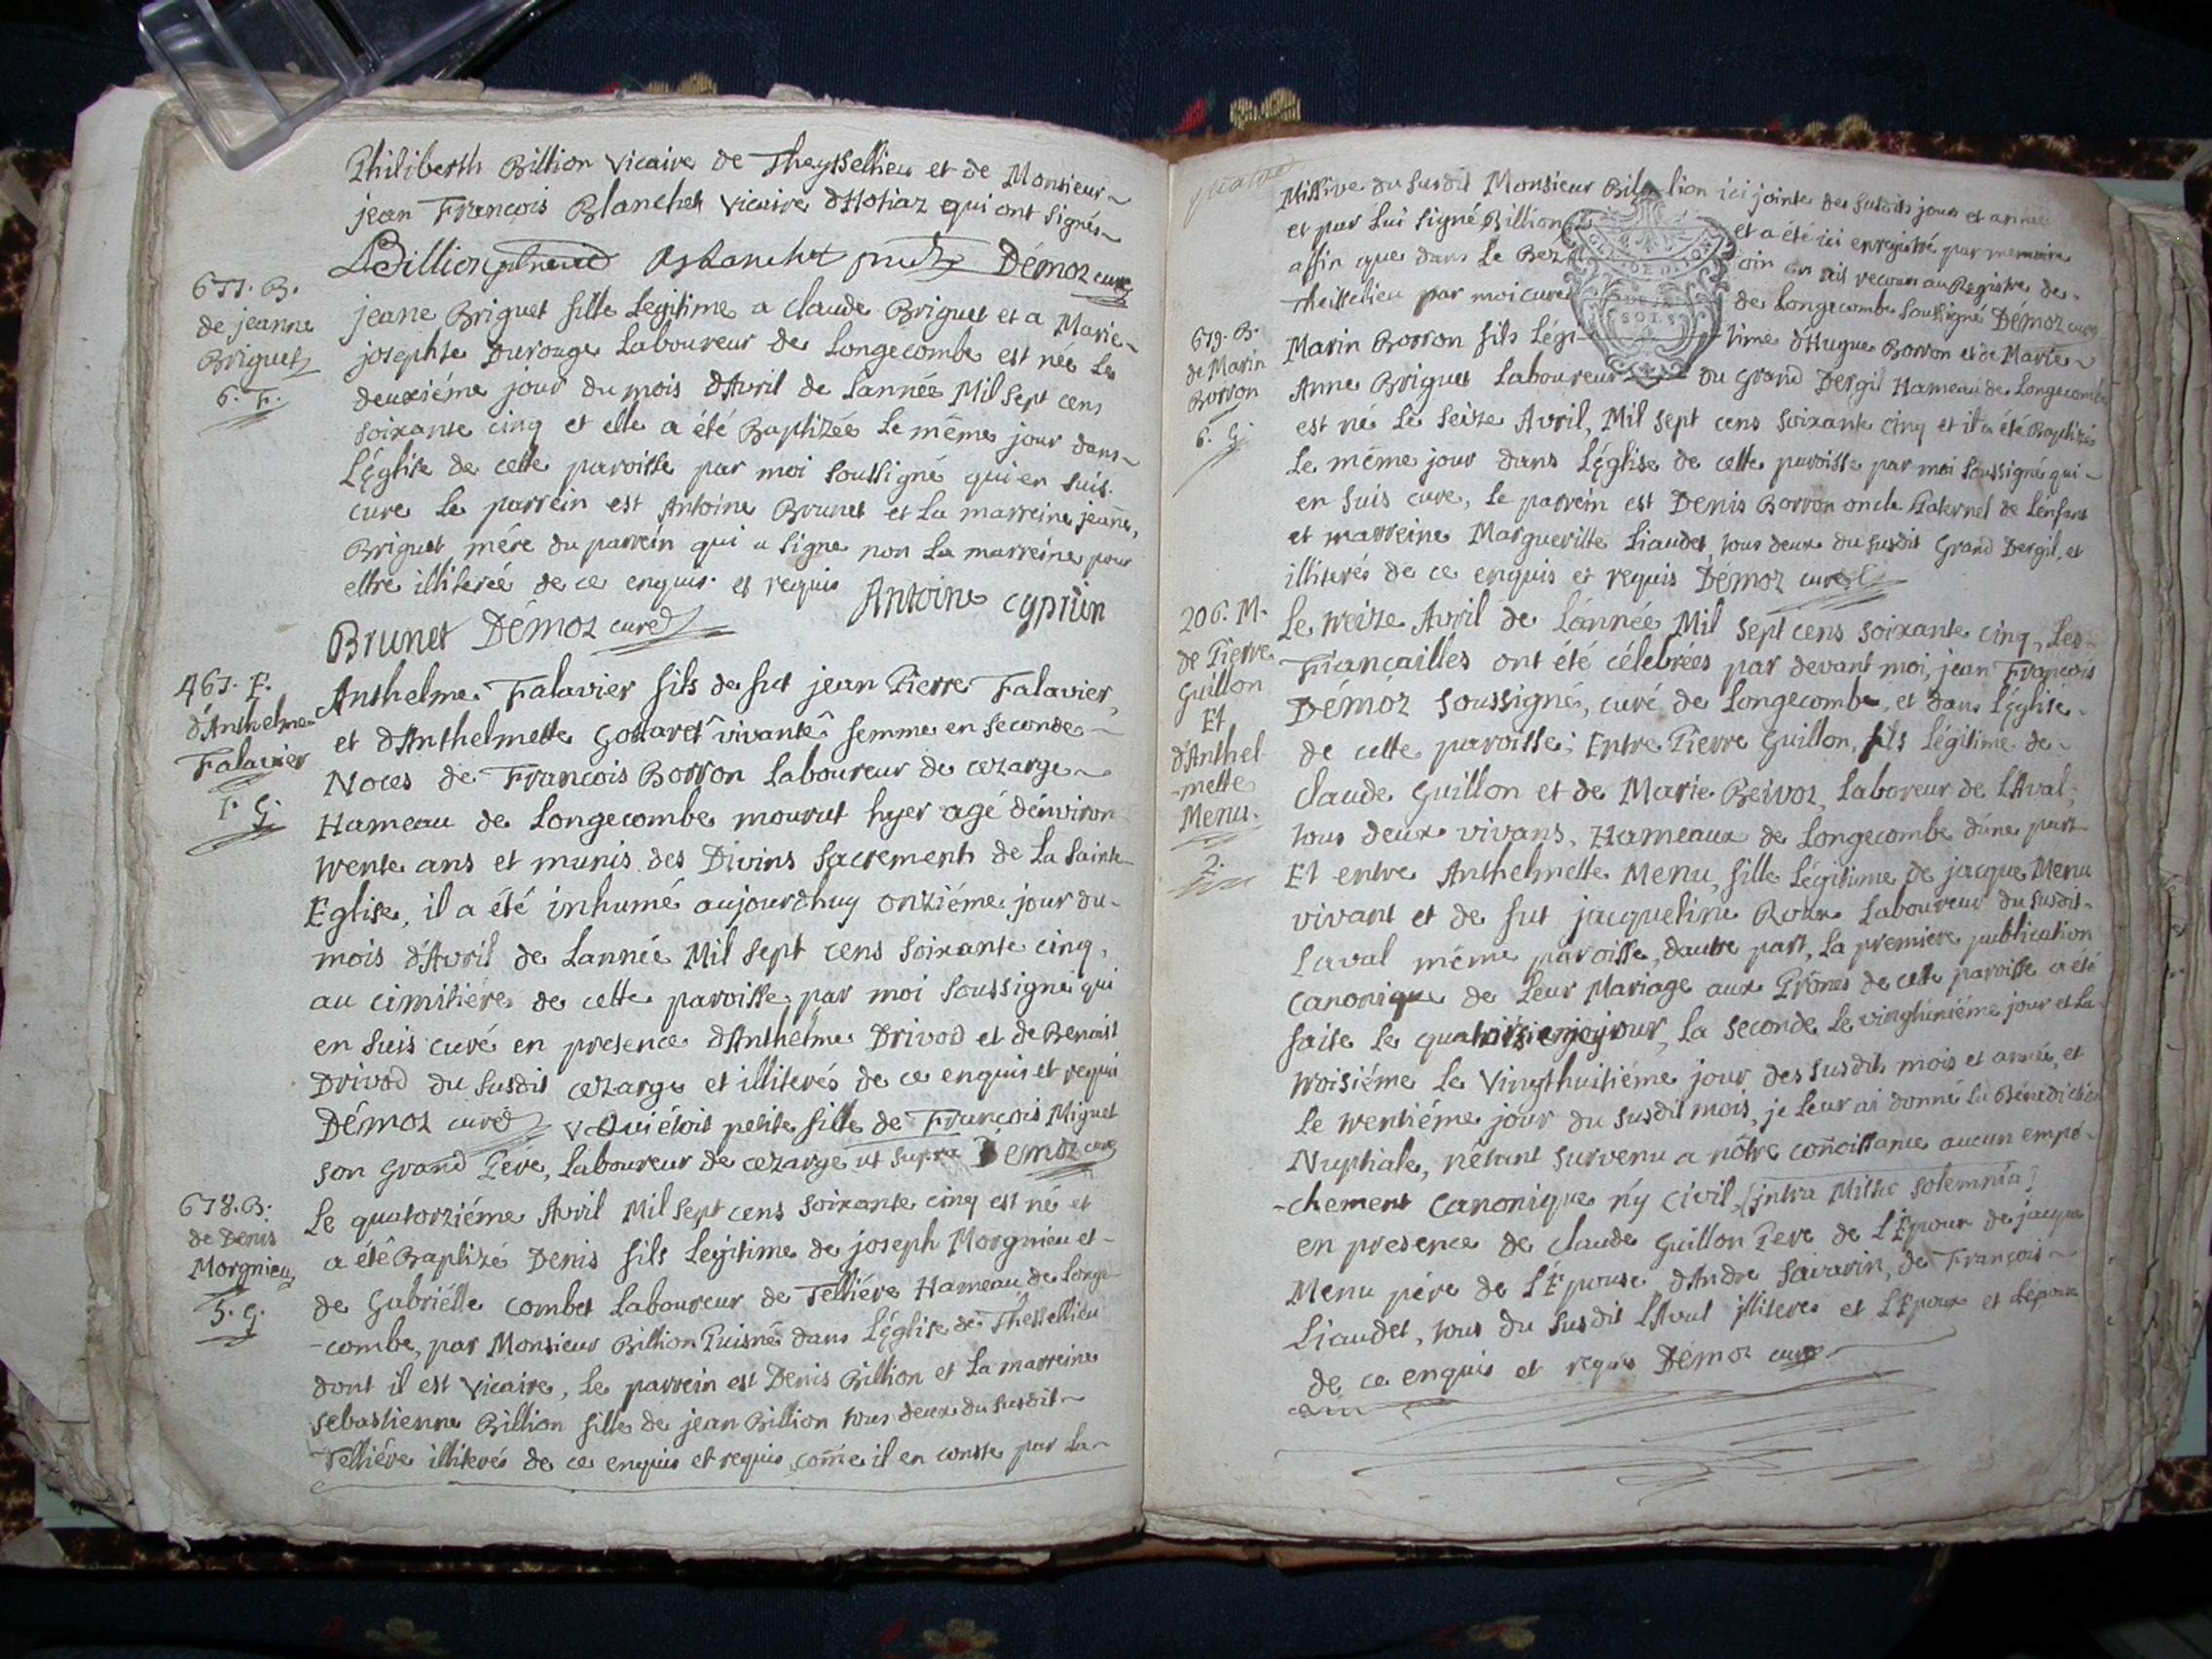 Philiberth Billion Vicaire de Theyssellieu et de Monsieur
jean François Blanchet Vicaire d'Hotiaz qui ont signés
Billion Blanchet Démoz curé
677. B.
de jeanne
Briguet
6. F.
jeane Briguet fille Legitime a claude Briguet et a Marie
josephte Durouge Laboureur de Longecombe est née Le
deuxiéme jour du mois d'Avril de Lannée Mil Sept cens
soixante cinq et elle a été Baptizée Le même jour dans
L'Église de cette paroisse par moi soussigné qui en suis
cure Le parrein est Antoine Brunet et La marreine jeane
Briguet mére du parrein qui a signe non La marreine pour
ettre illiterée de ce enquis et requis Antoine cyprien
Brunet Démoz curé
467. E.
d'Anthelme
Falavier
1. G.
Anthelme Falavier fils de fut jean Pierre Falavier,
et d'Anthelmette Gottaret vivante femme en seconde
Noces de François Borron Laboureur de cezarge
Hameau de Longecombe mourut hyer agé d'énviron
trente ans et munis des Divins Sacrements de La Sainte
Eglise, il a été inhumé aujourdhuy onziéme jour du
mois d'Avril de Lannée Mil Sept cens soixante cinq,
au cimitiére de cette paroisse, par moi Soussigné qui
en suis curé en presence d'Anthélme Drivod et de Benoist
Drivod du susdit cezarge et illiterés de ce enquis et requis
Démoz curé Qui étoit petite fille de François Miguet
son Grand Pére, Laboureur de cezarge ut supra Demoz curé
678. B.
de Denis
Morgnieu
5. G.
Le quatorziéme Avril Mil Sept cens soixante cinq est né et
a été Baptizé Denis fils Legitime de joseph Morgnieu et
de Gabriélle combet Laboureur de Telliére Hameau de Longe
-combe, par Monsieur Billion Puisné dans L'Église de Thessellieu
dont il est Vicaire, Le parrein est Denis Billion et La marreine
Sebastienne Billion fille de jean Billion tous deux du susdit
Telliére illiterés de ce enquis et requis come il en conste par La
Missive du susdit Monsieur Billion ici jointe des susdits jour et année
et par Lui signé Billion et a été ici enregistré par memoire
affin que dans Le Bezoin on ait recours au Registre de
Theissellieu par moi curé de Longecombe Soussigné Démoz curé
679. B.
de Marin
Borron
6. G.
Marin Borron fils Légitime d'Hugue Borron et de Marie
Anne Briguet Laboureur du Grand Dergil Hameau de Longecombe
est né Le seize Avril, Mil sept cens soixante cinq et il a été Baptizé
Le même jour dans L'Église de cette paroisse par moi soussigné qui
en suis cure, Le parrein est Denis Borron oncle Paternel de L'énfant
et marreine Margueritte Liaudet, tous deux du susdit Grand Dergil, et
illiterés de ce enquis et requis Démoz curé
206. M.
de Pierre
Guillon
Et
d'Anthel
-mette
Menu.
2.
Le treize Avril de L'année Mil sept cens soixante cinq, Les
Fiancailles ont été célebrées par devant moi, jean François
Démoz soussigné, curé de Longecombe, et dans L'église
de cette paroisse; Entre Pierre Guillon, fils Légitime de
claude Guillon et de Marie Reivoz, Laboreur de LAval,
tous deux vivans, Hameaux de Longecombe d'une part
Et entre Anthelmette Menu, fille Légitime de jacque Menu
vivant et de fut jacqueline Roux Laboureur du susdit
Laval même paroisse, d'autre part, La premiere publication
canonique de Leur Mariage aux Prônes de cette paroisse a été
faite Le jour, La seconde Le vingtuniéme jour et La
troisiéme Le Vingthuitiéme jour des susdits mois et année, et
Le trentiéme jour du susdit mois, je Leur ai donné La Bénédiction
Nuptiale, n'étant survenu a nôtre connoissance aucun empé-
-chement canonique n'y civil, (intra Missæ Solemnia)
en presence de claude Guillon Pere de L'Epoux de jacque
Menu pére de L'Epouse, d'Andre Savarin, de François
Liaudet, tous du Susdit LAval illiteres et L'Epoux et L'épouse
de ce enquis et requis Démoz curé